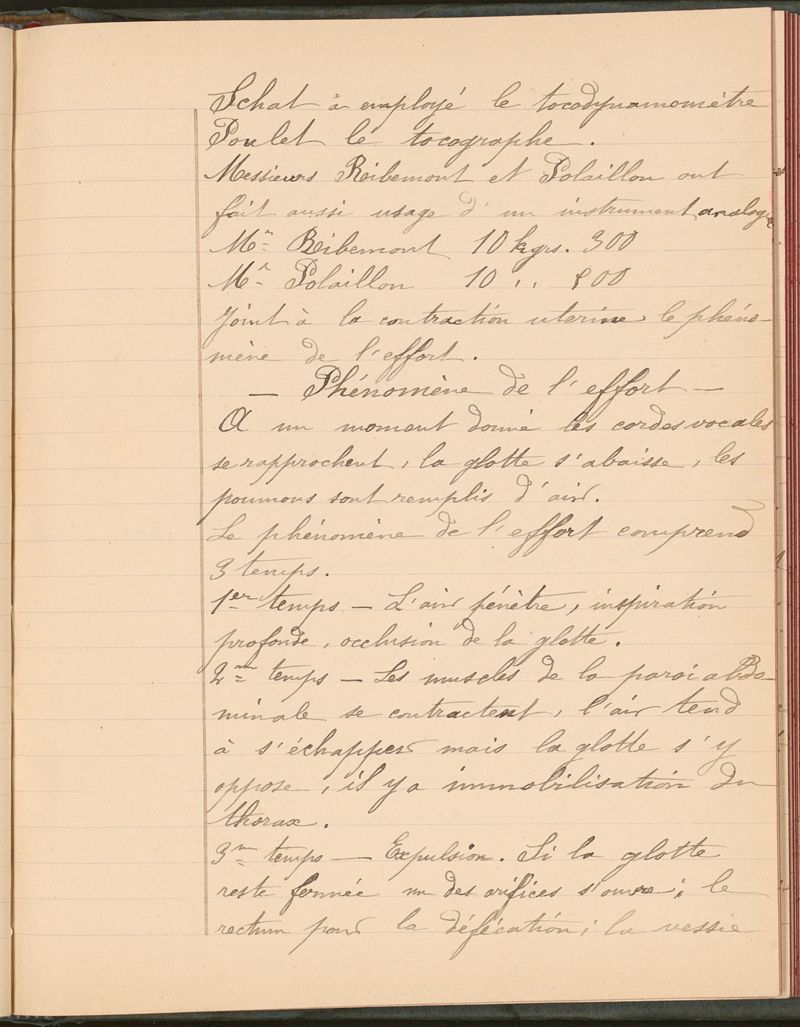 Schat à employé le tocodynamomètre
Poulet le tocographe.
Messieurs Ribemont et Polaillon ont
fait aussi usage d'un instrument analog
Mr Ribemont 10 kgrs. 300
Mr Polaillon 10 ,, 500
Joint à la contraction uterine le phéno-
mène de l'effort.
— Phénomène de l'effort —
A un moment donné les cordes vocales
se rapprochent, la glotte s'abaisse, les
poumons sont remplis d'air.
Le phénomène de l'effort comprend
3 temps.
1er temps — L'air pénètre, inspiration
profonde, occlusion de la glotte.
2me temps — Les muscles de la paroi abdo-
minale se contractent, l'air tend
à s'échapper mais la glotte s'y
oppose, il y a immobilisation du
thorax.
3me temps — Expulsion. Si la glotte
reste fermée un des orifices s'ouvre; le
rectum pour la défécation; la vessie